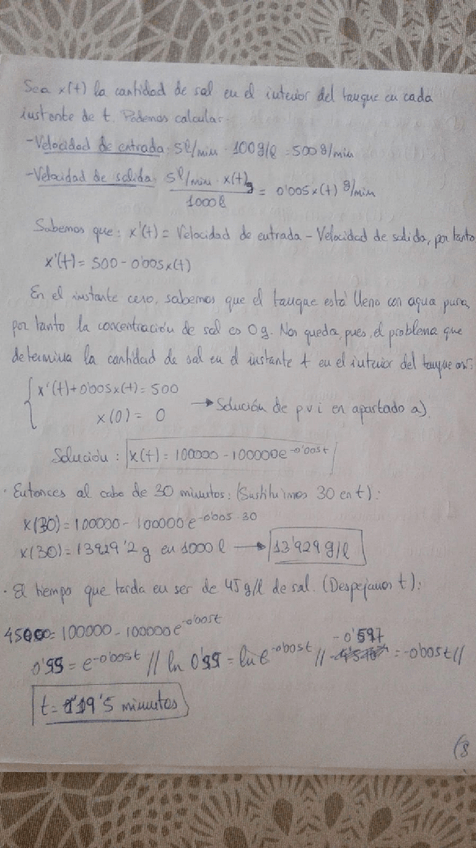 Sea x(t) la cantidad de sal en el interior del tanque en cada
instante de t. Podemos calcular:
-Velocidad de entrada: 5 l/min · 100 g/l = 500 g/min
-Velocidad de salida: 5 l/min · x(t) g / 1000 l = 0'005x(t) g/min
Sabemos que: x'(t) = Velocidad de entrada - Velocidad de salida, por tanto
x'(t) = 500 - 0'005x(t)
En el instante cero, sabemos que el tanque está lleno con agua pura,
por tanto la concentración de sal es 0 g. Nos queda, pues, el problema que
determina la cantidad de sal en el instante t en el interior del tanque es:
x'(t) + 0'005x(t) = 500
x(0) = 0 → Solución de p v i en apartado a).
Solución: x(t) = 100000 - 100000e^-0'005t
· Entonces al cabo de 30 minutos: (Sustituimos 30 en t):
x(30) = 100000 - 100000e^-0'005·30
x(30) = 13929'2 g en 1000 l → 13'929 g/l
· El tiempo que tarda en ser de 45 g/l de sal. (Despejamos t):
45000 = 100000 - 100000e^-0'005t
0'55 = e^-0'005t // ln 0'55 = ln e^-0'005t // -0'597 = -0'005t //
t = 119'5 minutos
(8